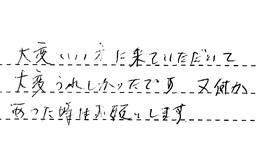 大変いい方に来ていただいて
大変うれしかったです 又何か
あった時はお願いします